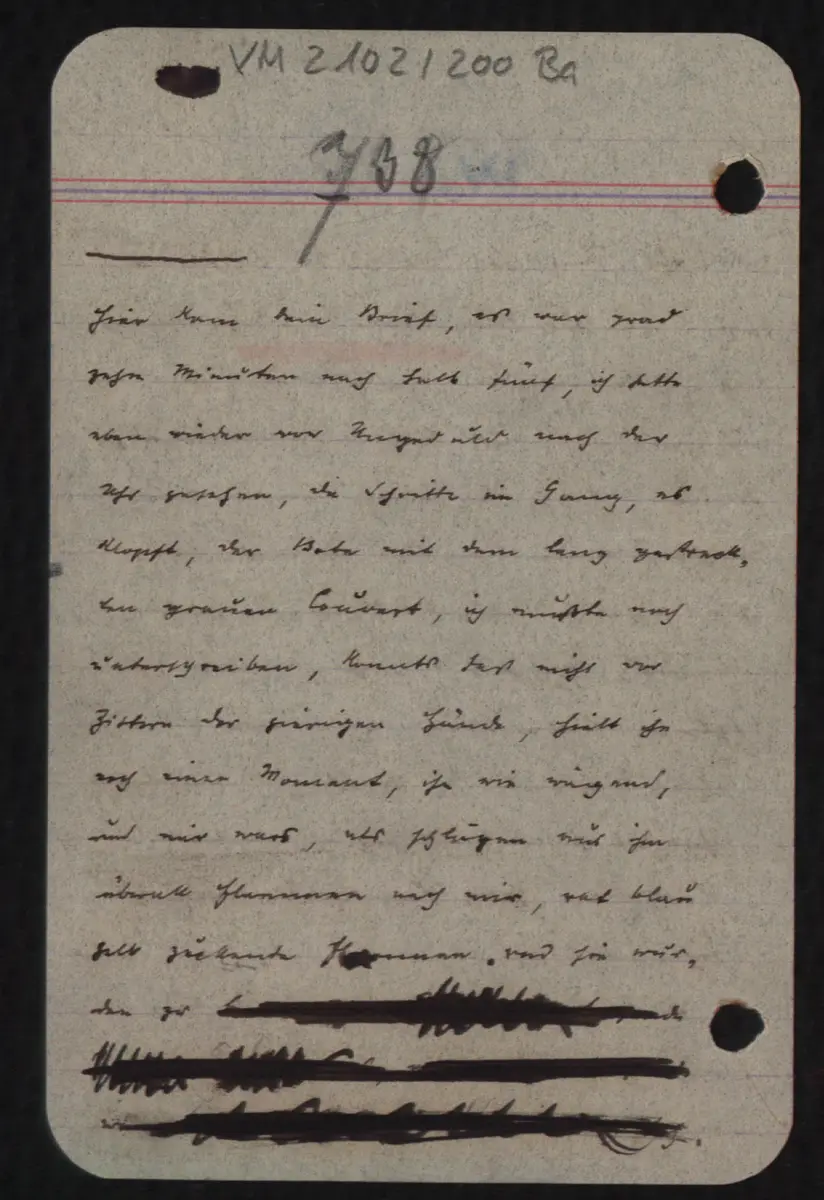 VM 2102 / 200 Ba
738
hier kam dein Brief, es war grad
zehn Minuten nach halb fünf, ich hatte
eben wieder vor Ungeduld nach der
Uhr gesehen, die Schritte im Gang, es
klopft, der Bote mit dem lang gestreck-
ten grauen Couvert, ich mußte noch
unterschreiben, konnts fast nicht vor
Zittern der gierigen Hände, hielt ihn
noch einen Moment, ihn wie wiegend,
und mir wars, als schlügen aus ihm
überall Flammen nach mir, rot blau
gelb zuckende Flammen. und sie wur-
den zu